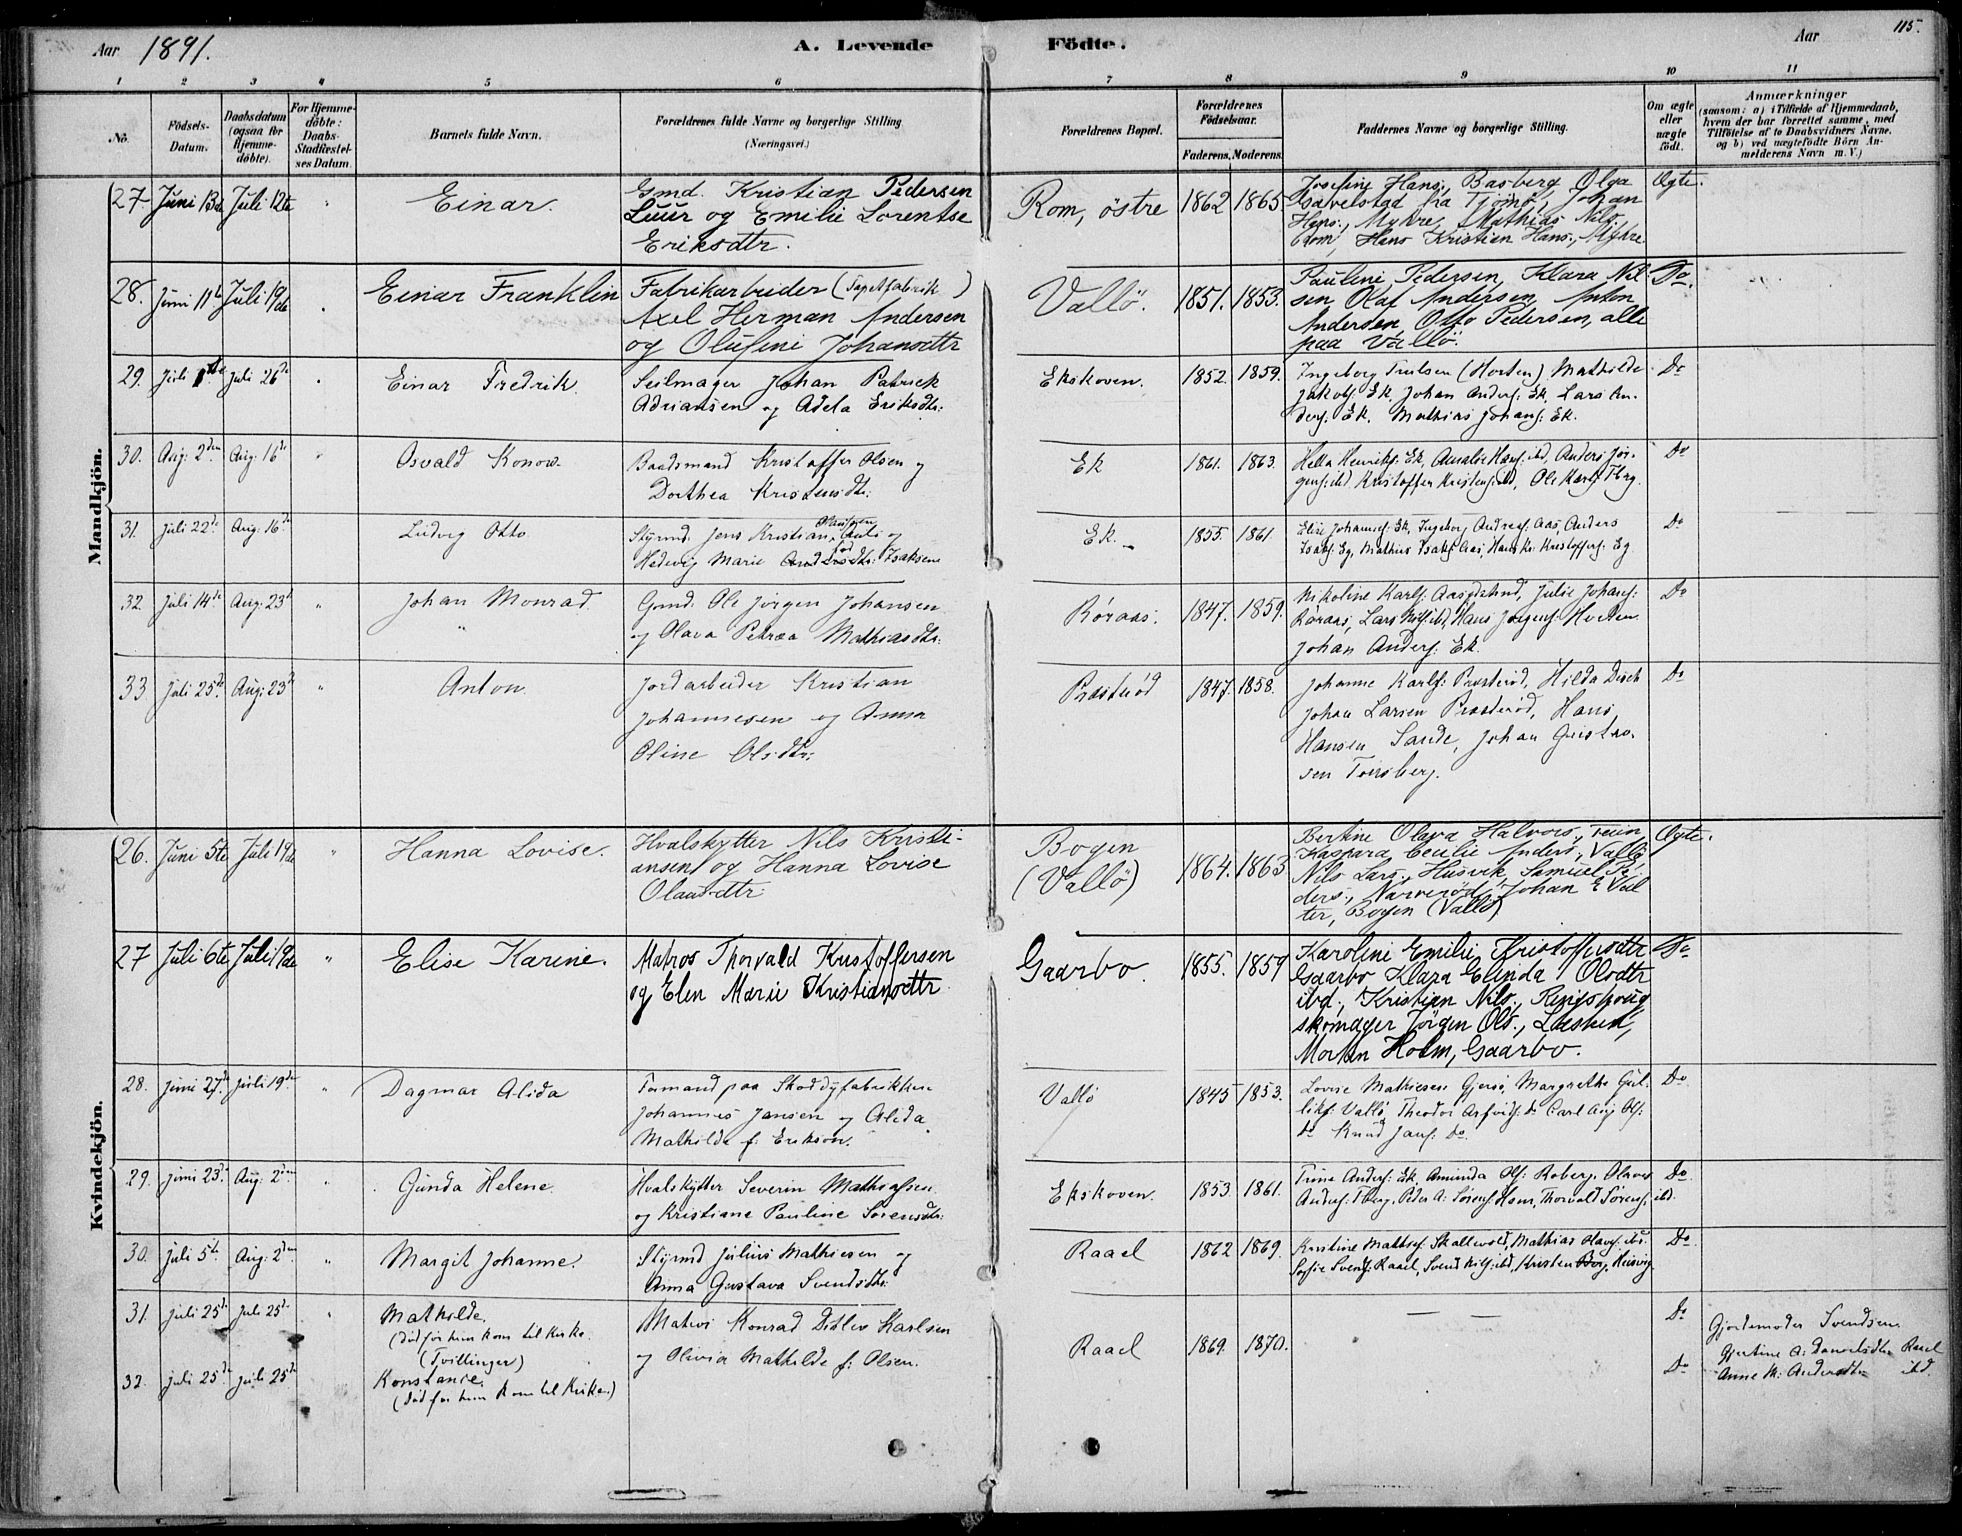 Aar 1891.
A. Levende Födte.
Aar
115.
1 2 3 4 5 6 7 8 9 10 11
No.
Födsels-Datum.
Daabsdatum (ogsaa for Hjemme-döbte).
For Hjemme-döbte: Daabs-Stadfæstel-ses Datum.
Barnets fulde Navn.
Forældrenes fulde Navne og borgerlige Stilling
(Næringsvei.)
Forældrenes Bopæl.
Forældrenes Födselsaar.
Faderens. Moderens.
Faddernes Navne og borgerlige Stilling.
Om ægte eller uægte födt.
Anmærkninger
(saasom: a) i Tilfælde af Hjemmedaab,
hvem der har forrettet samme, med
Tilföielse af to Daabsvidners Navne.
og b) ved uægtefödte Börn An-
melderens Navn m. V.)
Mandkjön.
27. Juni 13de Juli 12te " Einar.
Gmd. Kristian Pedersen
Luur og Emilie Lorentse
Eriksdtr.
Rom, østre 1862 1865
Josefine Hans., Basberg Olga
fra Tjømø, Johan
Hans., Myhre, Mathias Nils.
Rom, Hans Kristian Hans., Myhre.
Ægte.
28. Juni 11te Juli 19de Einar Franklin
Fabrikarbeider (Tapetfabrik)
Axel Herman Andersen
og Olufine Johansdtr
Vallö. 1851. 1853.
Pauline Pedersen, Klara Nil-
sen Olaf Andersen, Anton
Andersen, Otto Pedersen, alle
paa Vallö.
Do.
29. Juli 1ste Juli 26de Einar Fredrik.
Seilmager Johan Patrick
Adriansen og Adela Eriksdtr:
Ekskoven. 1852. 1859.
Ingeborg Trulsen (Horten) Mathilde
Jakobs: Ek, Johan Anders: Ek. Lars An-
ders: Ek, Mathias Johans: Ek.
Do
30. Aug. 2den Aug. 16de " Osvald Konow.
Baadsmand Kristoffer Olsen og
Dorthea Kristensdtr:
Ek 1861. 1863.
Hella Henriks: Ek, Amalie Hans: ibd, Anders Jør-
gens: ibd, Kristoffer Kristens: ibd, Ole Karls: Tbrg.
Do
31. Juli 22de Aug: 16de Ludvig Otto.
Styrmd. Jens Kristian og
Hedevig Marie Isaksen
Ek. 1855. 1861.
Elise Johannes: Ek, Ingeborg Andreas: Aas, Anders
Isaks: Eg, Mathias Isaks: Aas, Hans Kr: Kristoffers: Eg.
Do
32. Juli 14de Aug: 23de " Johan Monrad.
Gmd. Ole Jørgen Johansen
og Olava Petrea Mathiasdtr:
Røraas. 1847. 1859.
Nikoline Karls: Julie Johans:
Røraas, Lars Nils: ibd, Hans Jørgens: Hveten
Johan Anders: Ek.
Do
33 Juli 25de Aug: 23de " Anton.
Jordarbeider Kristian
Johannesen og Anna
Oline Olsdtr:
Præsterød 1847. 1858.
Johanne Karls: Præsterød, Hilda Disch
Johan Larsen Præsterød, Hans
Hansen Sande, Johan Gustav-
sen Tønsberg.
Do
Kvindekjön.
26. Juni 5te Juli 19de " Hanna Lovise.
Hvalskytter Nils Kristi-
ansen og Hanna Lovise
Olausdtr
Bogen
(Vallö) 1864. 1863
Bertine Olava Halvors.,
Kaspara Cecilie Anders., Vallö
Nils Lars., Husvik, Samuel Pe-
ders., Narverød, Johan E Val-
ter, Bogen (Vallö)
Ægte.
27 Juli 6te Juli 19de " Elise Karine.
Matros Thorvald Kristoffersen
og Elen Marie Kristiansdtr
Gaarbo 1855. 1859
Karoline Emilie Kristoffersdtr
Gaarbo Klara Elinda Olsdtr
ibd., Kristian Nils., Ringshaug
skomager Jörgen Ols.,
Morten Holm, Gaarbo.
Do
28. Juni 27de Juli 19de " Dagmar Alida
Formand paa Skoddyfabrikken
Johannes Jansen og Alida
Mathilde f. Erikson.
Vallö 1845 1853.
Lovise Mathiesen Gjersø, Margrethe Gut-
liks: Vallö, Theodor Arfvids: do Carl Aug Ols:
do Knud Jans: do.
Do
29. Juni 23de Aug. 2den Gunda Helene.
Hvalskytter Severin Mathiassen
og Kristiane Pauline Sørensdtr:
Ekskoven. 1853 1861.
Trine Anders: Ek, Aminda Ols: Roberg, Olaves
Anders: Tbrg, Peder A: Sørens: Hsm, Thorvald Sørens: ibd.
Do
30. Juli 5te Aug: 2den " Margit Johanne.
Styrmd Julius Mathiesen og
Anna Gustava Svendsdtr:
Raael 1862 1869.
Kristine Maths: Skallevold, Mathias Hans: ibd.
Sofie Svends: Raael, Svend Nils: ibd, Kristen Berg, Husvig
Do
31. Juli 25de Juli 25de " Mathilde.
(død før hun kom til Kirke.
(Tvillinger)
Matros Konrad Ditlev Karlsen
og Olivia Mathilde f: Olsen.
Raael 1869. 1870. — — Do
Gjordemoder Svendsen
Gjertine A: Danielsdtr Raael
Anne M: Andersdtr ibd.
32. Juli 25de Juli 25de Konstance.
(død før hun kom til Kirke.)
Do